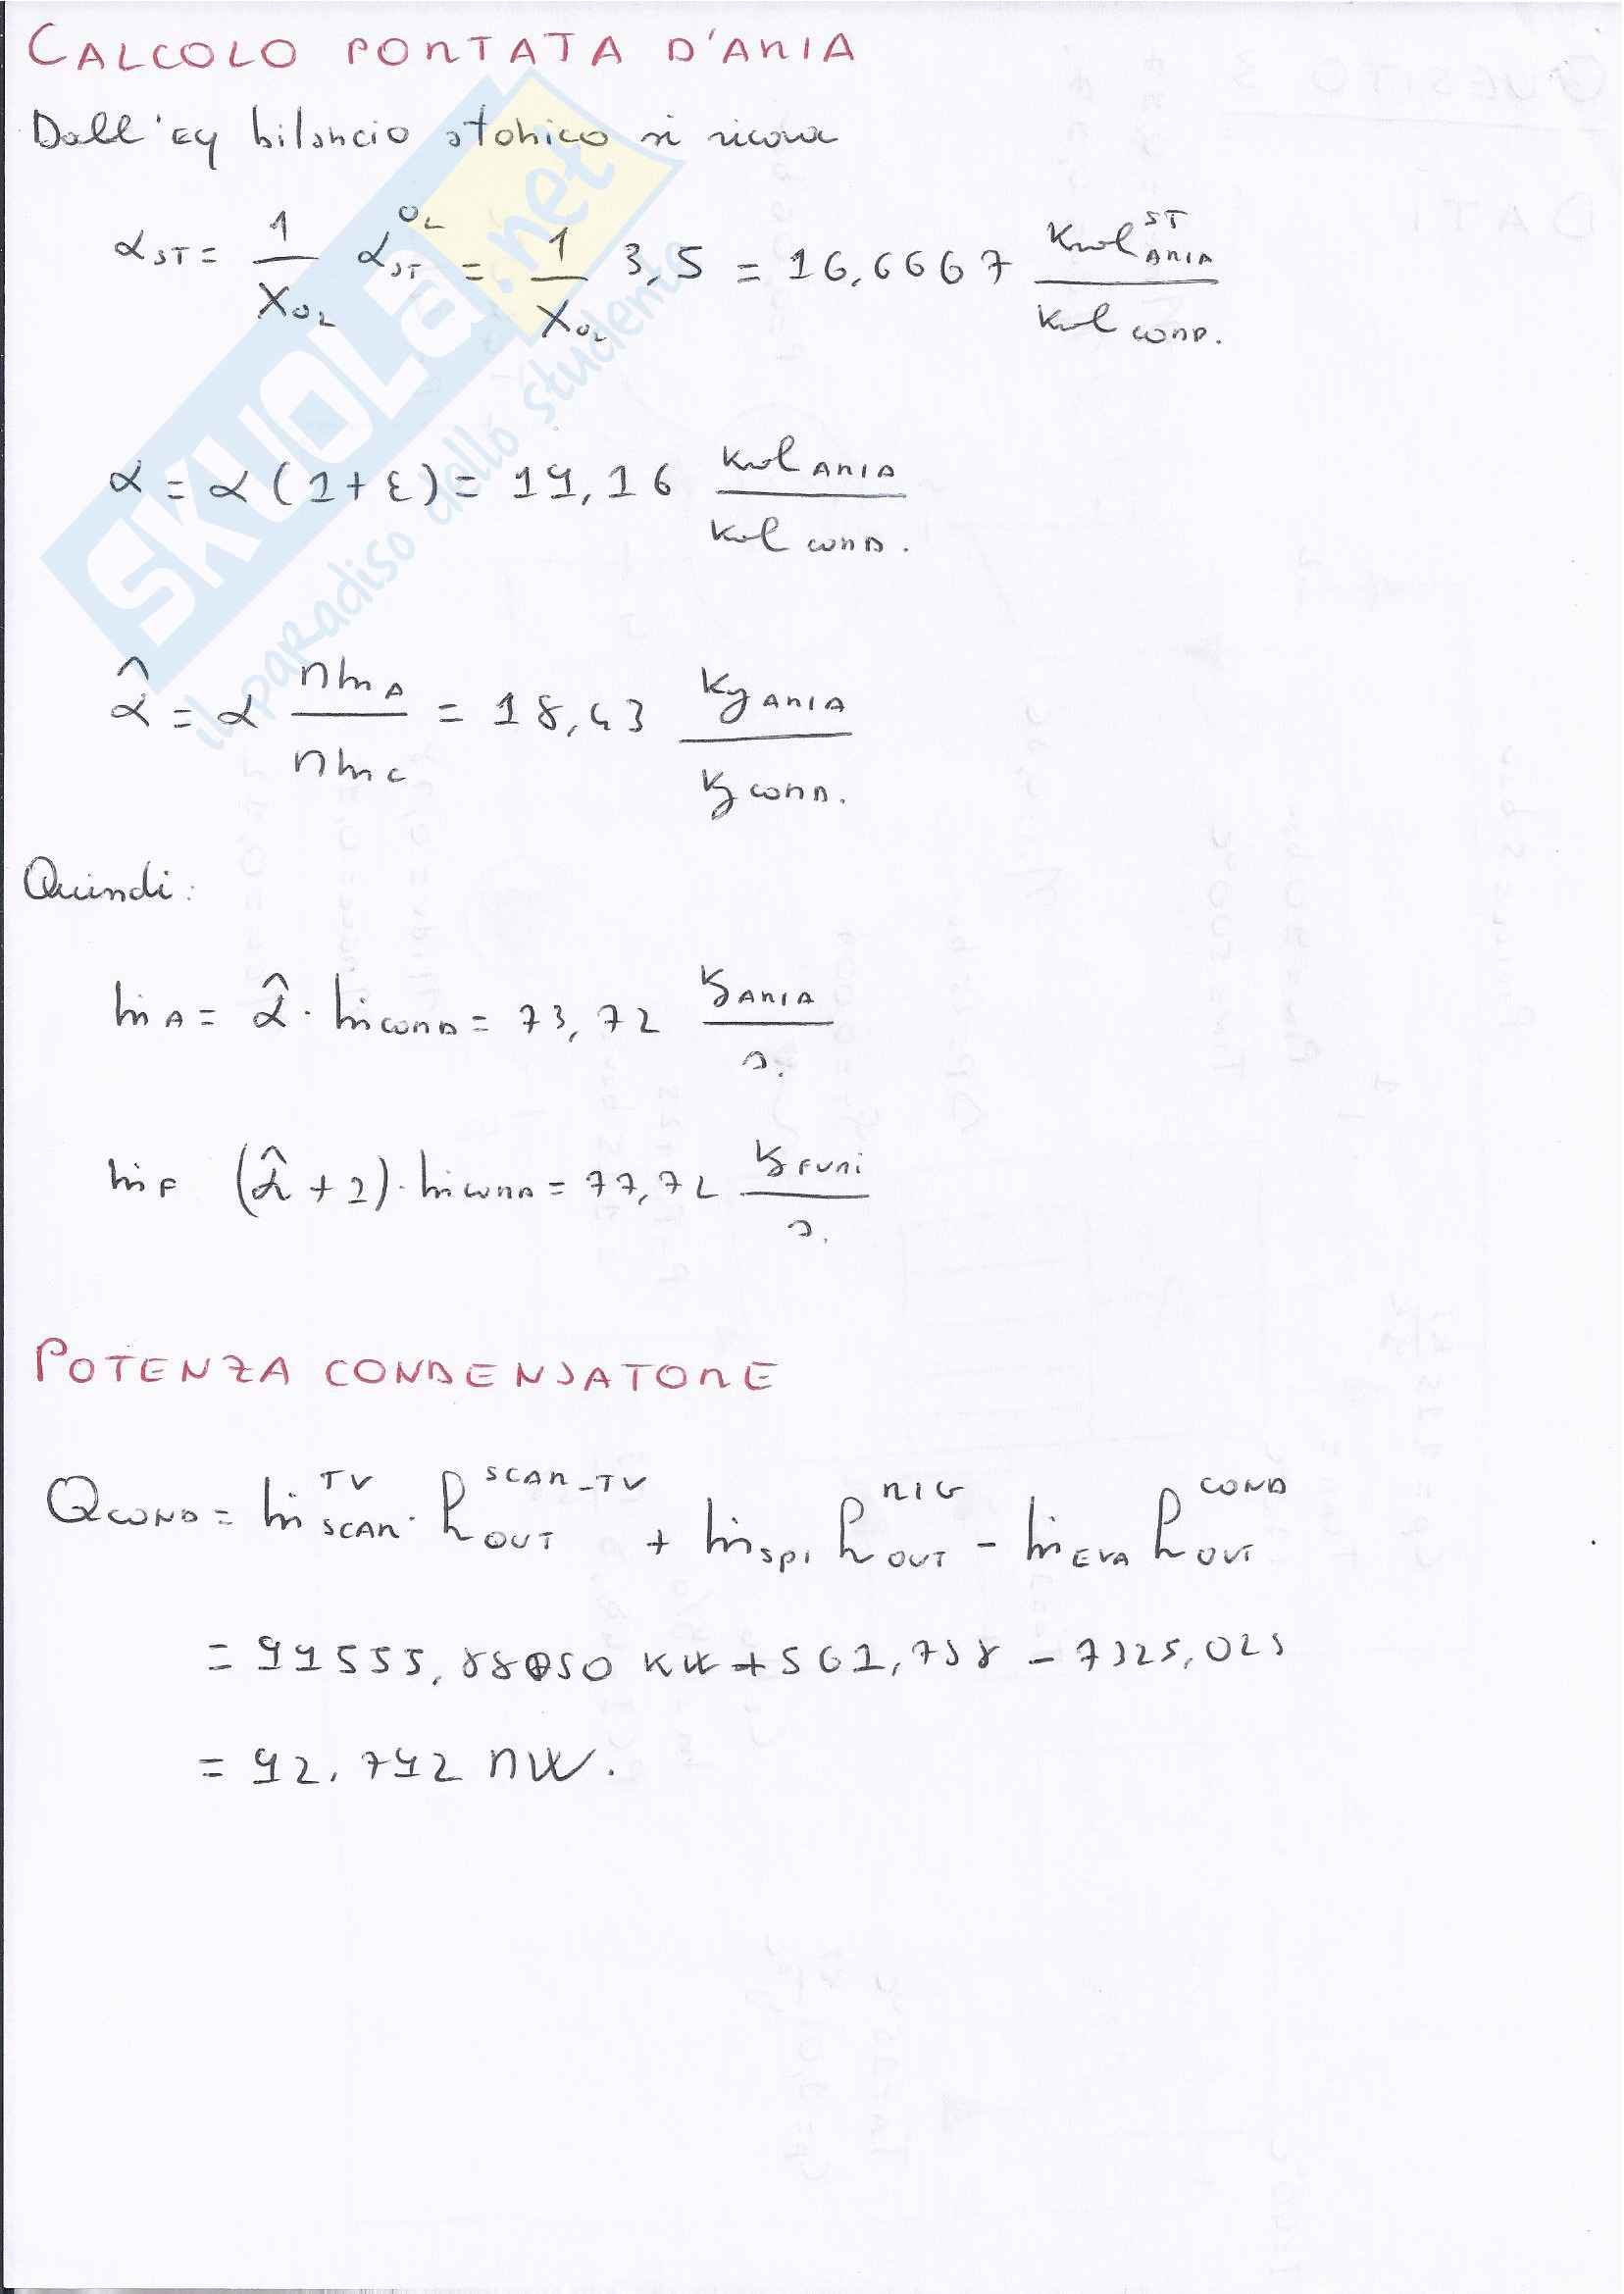 CALCOLO PORTATA D'ARIA
Dall'eq bilancio atomico si ricava
α_ST = 1/X_O2 α_ST^O2 = 1/X_O2 3,5 = 16,6667 kmol_ARIA^ST / kmol COMB.
α = α (1+ε) = 19,16 kmol ARIA / kmol COMB.
α̂ = α MM_A / MM_C = 18,43 kg ARIA / kg COMB.
Quindi:
ṁ_A = α̂ · ṁ_COMB = 73,72 kg ARIA / s.
ṁ_F (α̂ + 1) · ṁ_COMB = 77,72 kg FUMI / s.
POTENZA CONDENSATORE
Q_COND = ṁ_SCAR^TV · h_OUT^SCAR_TV + ṁ_SPI h_OUT^RIG - ṁ_EVA h_OUT^COND
= 99555, KW + 561,738 - 7325,025
= 92,792 MW.
SKUOLA.net
il paradiso dello studente